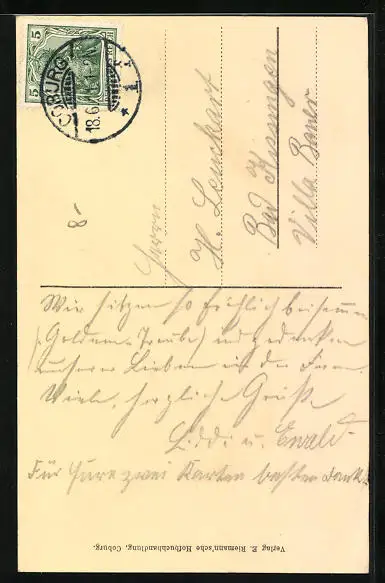 COBURG 1
18.6.
5 5
8-
Herrn
H. Leuckart
Bad Kissingen
Villa Bauer
Wir sitzen so fröhlich beisammen
(Goldene Traube) und gedenken
unserer Lieben in der Ferne.
Viele, herzliche Grüße
Liddi u. Ewald.
Für Eure zwei Karten besten Dank!
Verlag E. Riemann'sche Hofbuchhandlung, Coburg.